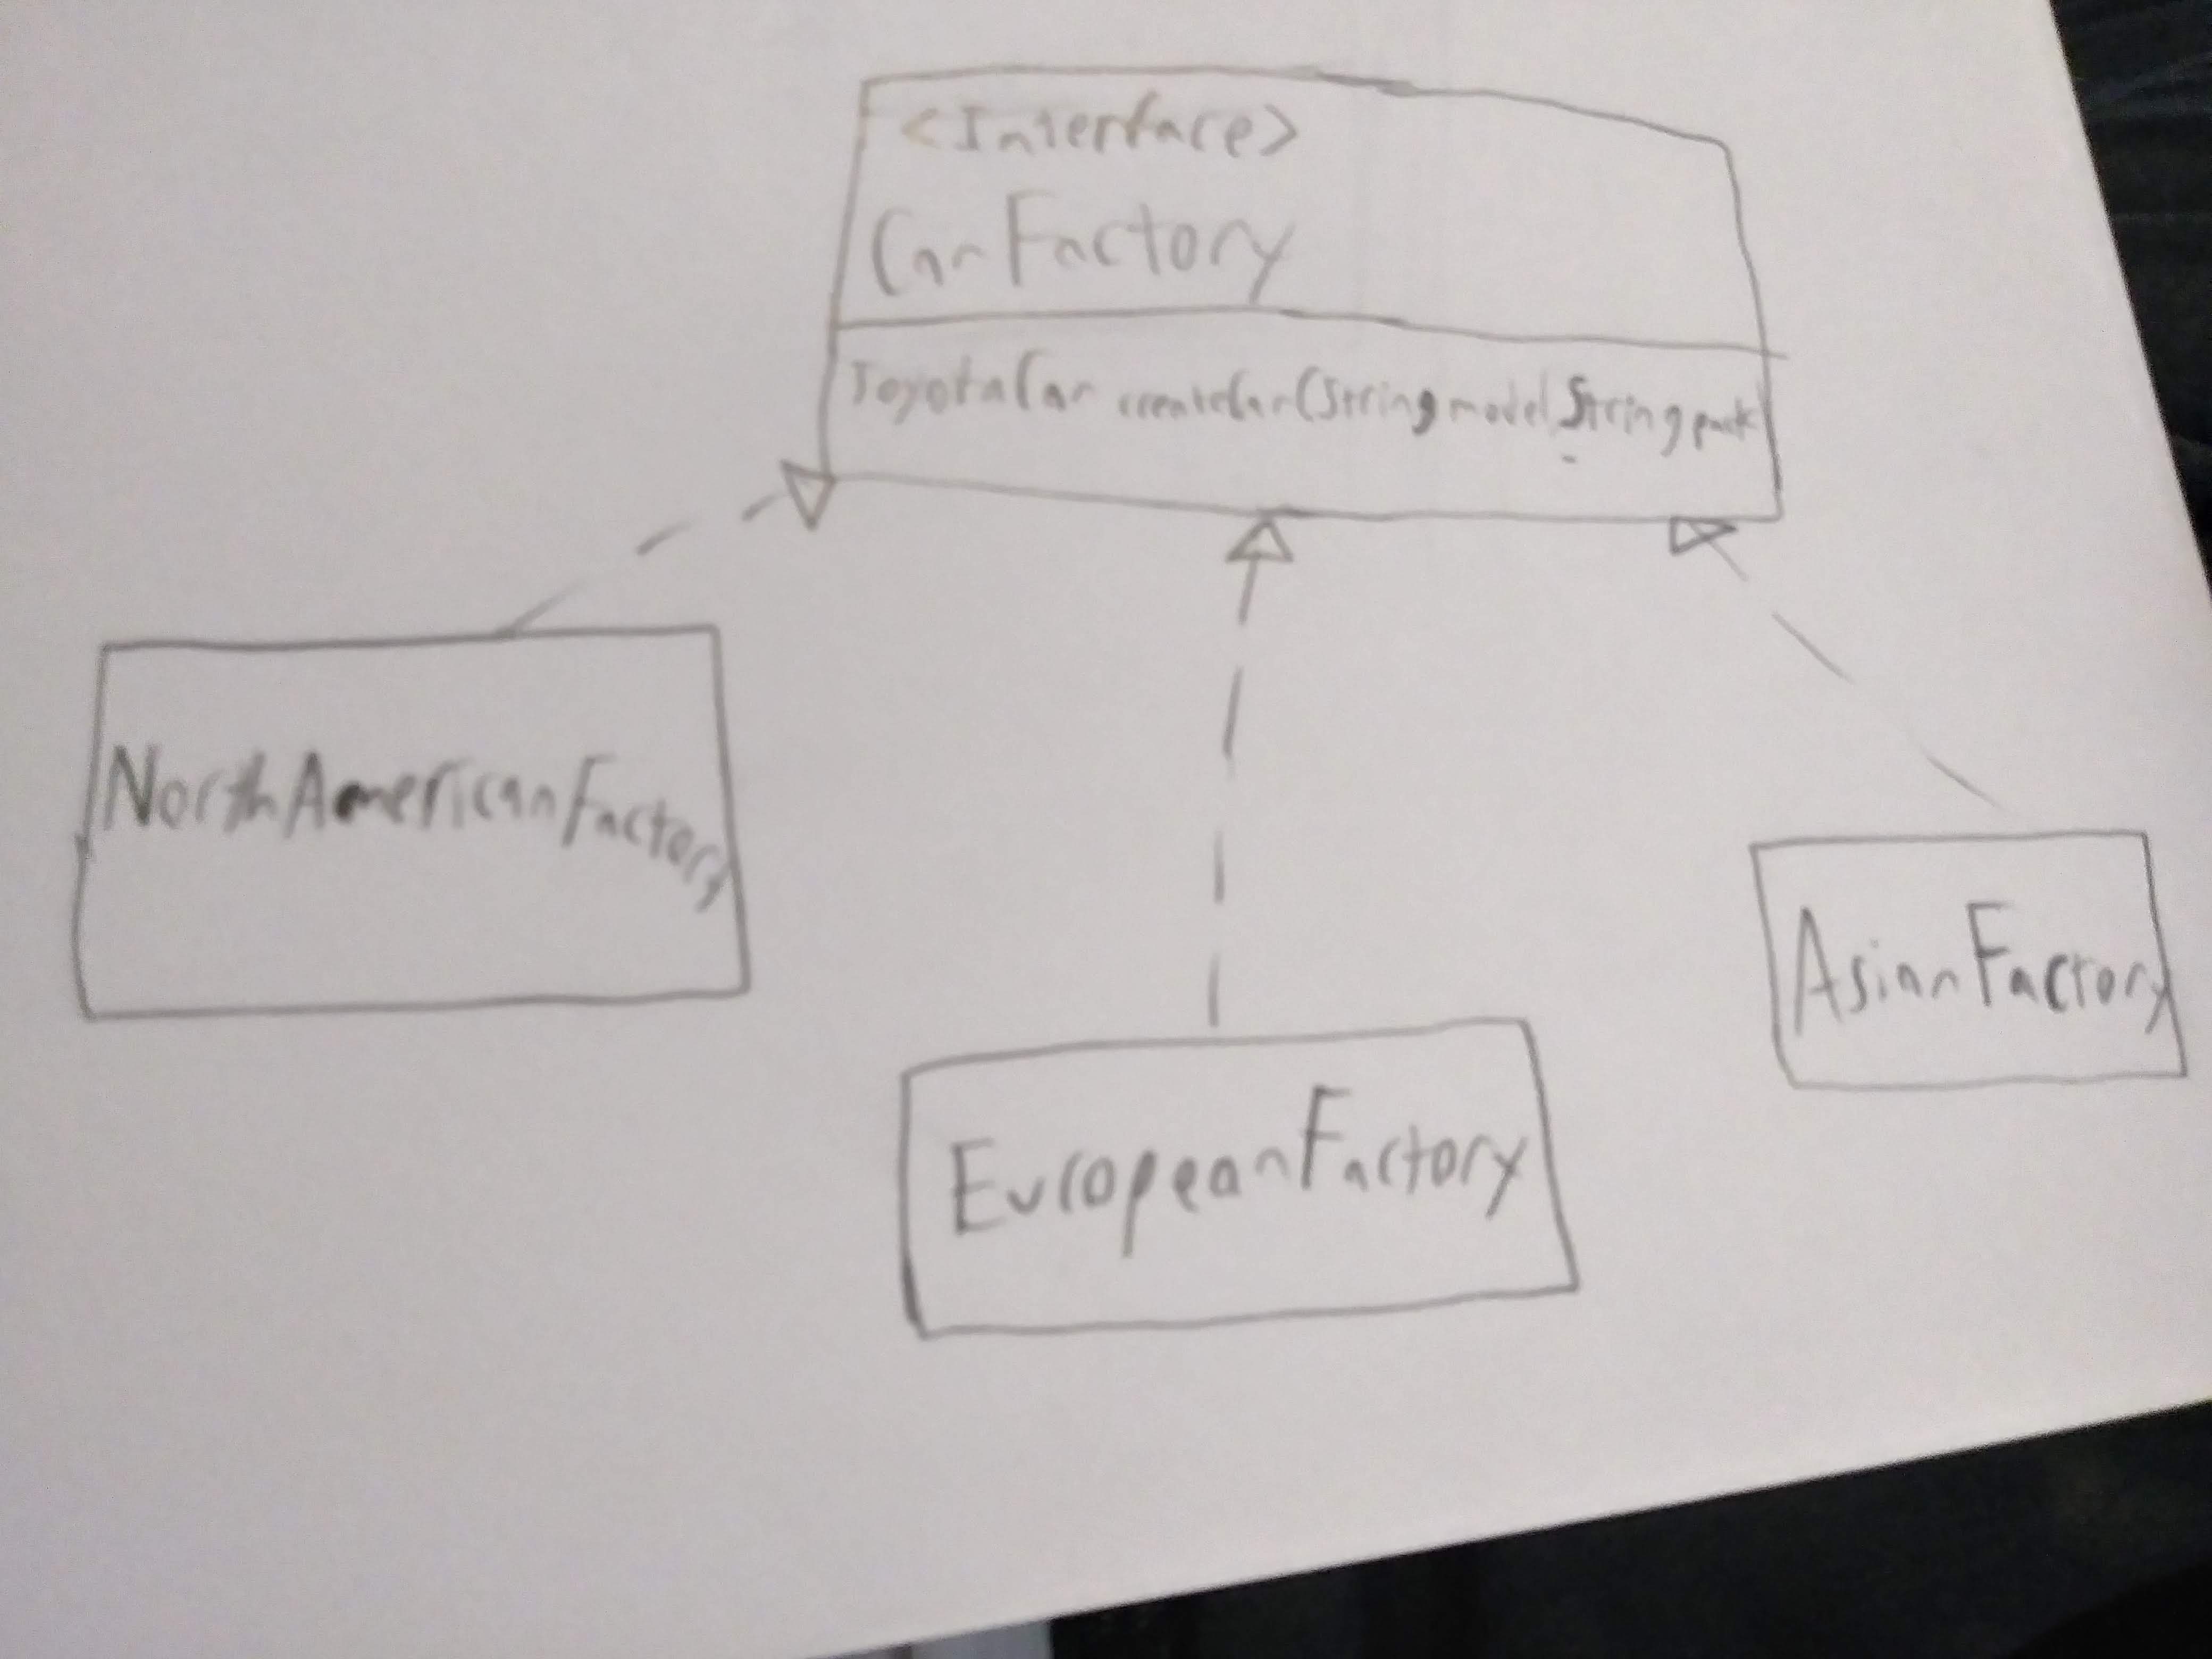 <Interface>
CarFactory
ToyotaCar createCar(String model, String pack
NorthAmericanFactory
AsianFactory
EuropeanFactory